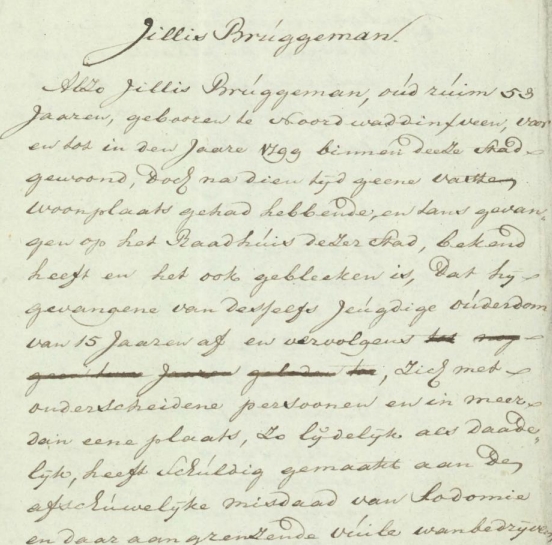 Jillis Brúggeman.
Alzo Jillis Brúggeman, oúd rúim 53
Jaaren, gebooren te Noordwaddinxveen, voor
en tot in den Jaare 1799 binnen deeze Stad
gewoond, Doch na dien tyd geene vaste
woonplaats gehad hebbende, en tans gevan„
gen op het Raadhúis dezer Stad, bekend
heeft en het ook gebleeken is, Dat hy
gevangene van desselfs Jeúgdige oúderdom
van 15 Jaaren af en vervolgens tot nog
Jaaren geleden toe, Zich met
onderscheidene persoonen en in meer
dan eene plaats, zo lydelyk als daade„
lyk, heeft schúldig gemaakt aan De
afschúwelyke misdaad van Sodomie
en daar aan grenzende vúile wanbedryven